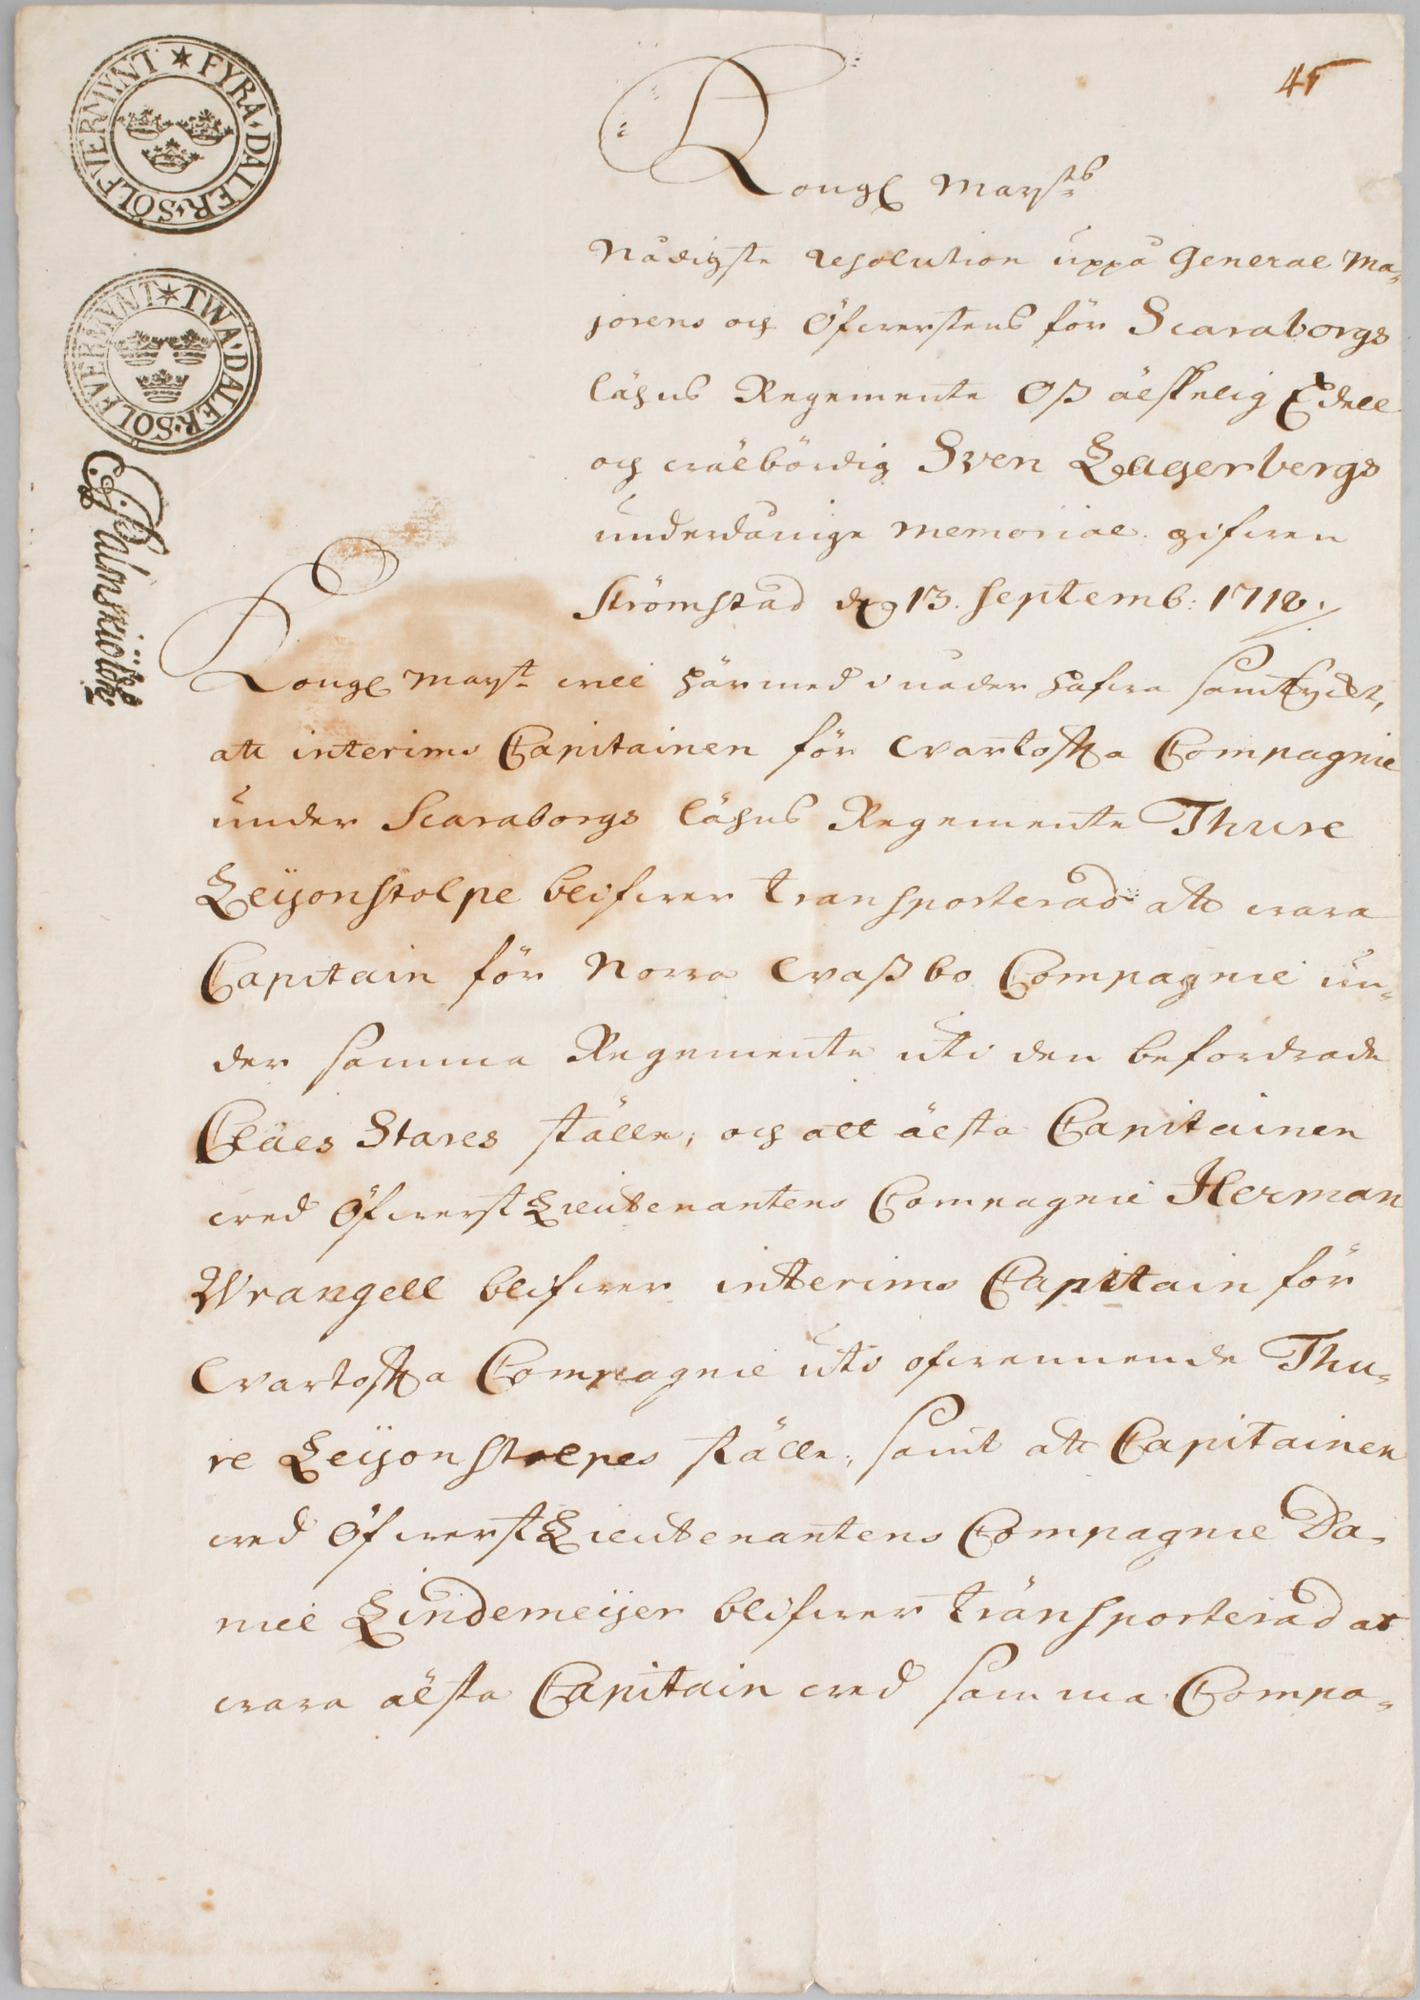 FYRA·DALER·SÖLFVERMYNT
TWA·DALER·SÖLFVERMYNT
Palmskiöldh
45
Kongl Mayttz
Nådigste resolution uppå General Ma-
jorens och Öfwerstens för Scaraborgs
lähns Regemente Oß älskelig Edell
och wälbördig Sven Lagerbergs
underdånige memorial. gifwen
Strömstad d 13. Septemb: 1718./
Kongl Mayt will härmed i nåder hafwa samtyckt,
att interims Capitainen för Wartofta Compagnie
under Scaraborgs lähns Regemente Thure
Leijonstolpe blifwer transporterad att wara
Capitain för Norra Waßbo Compagnie un-
der samma Regemente uti den befordrade
Claes Stares ställe, och att älsta Capitainen
wed ÖfwerstLieutenantens Compagnie Herman
Wrangell blifwer interims Capitain för
Wartofta Compagnie uti ofwannemnde Thu-
re Leijonstolpes ställe, samt att Capitainen
wed ÖfwerstLieutenantens Compagnie Da-
niel Lindemeijer blifwer transporterad at
wara älsta Capitain wed samma Compa-